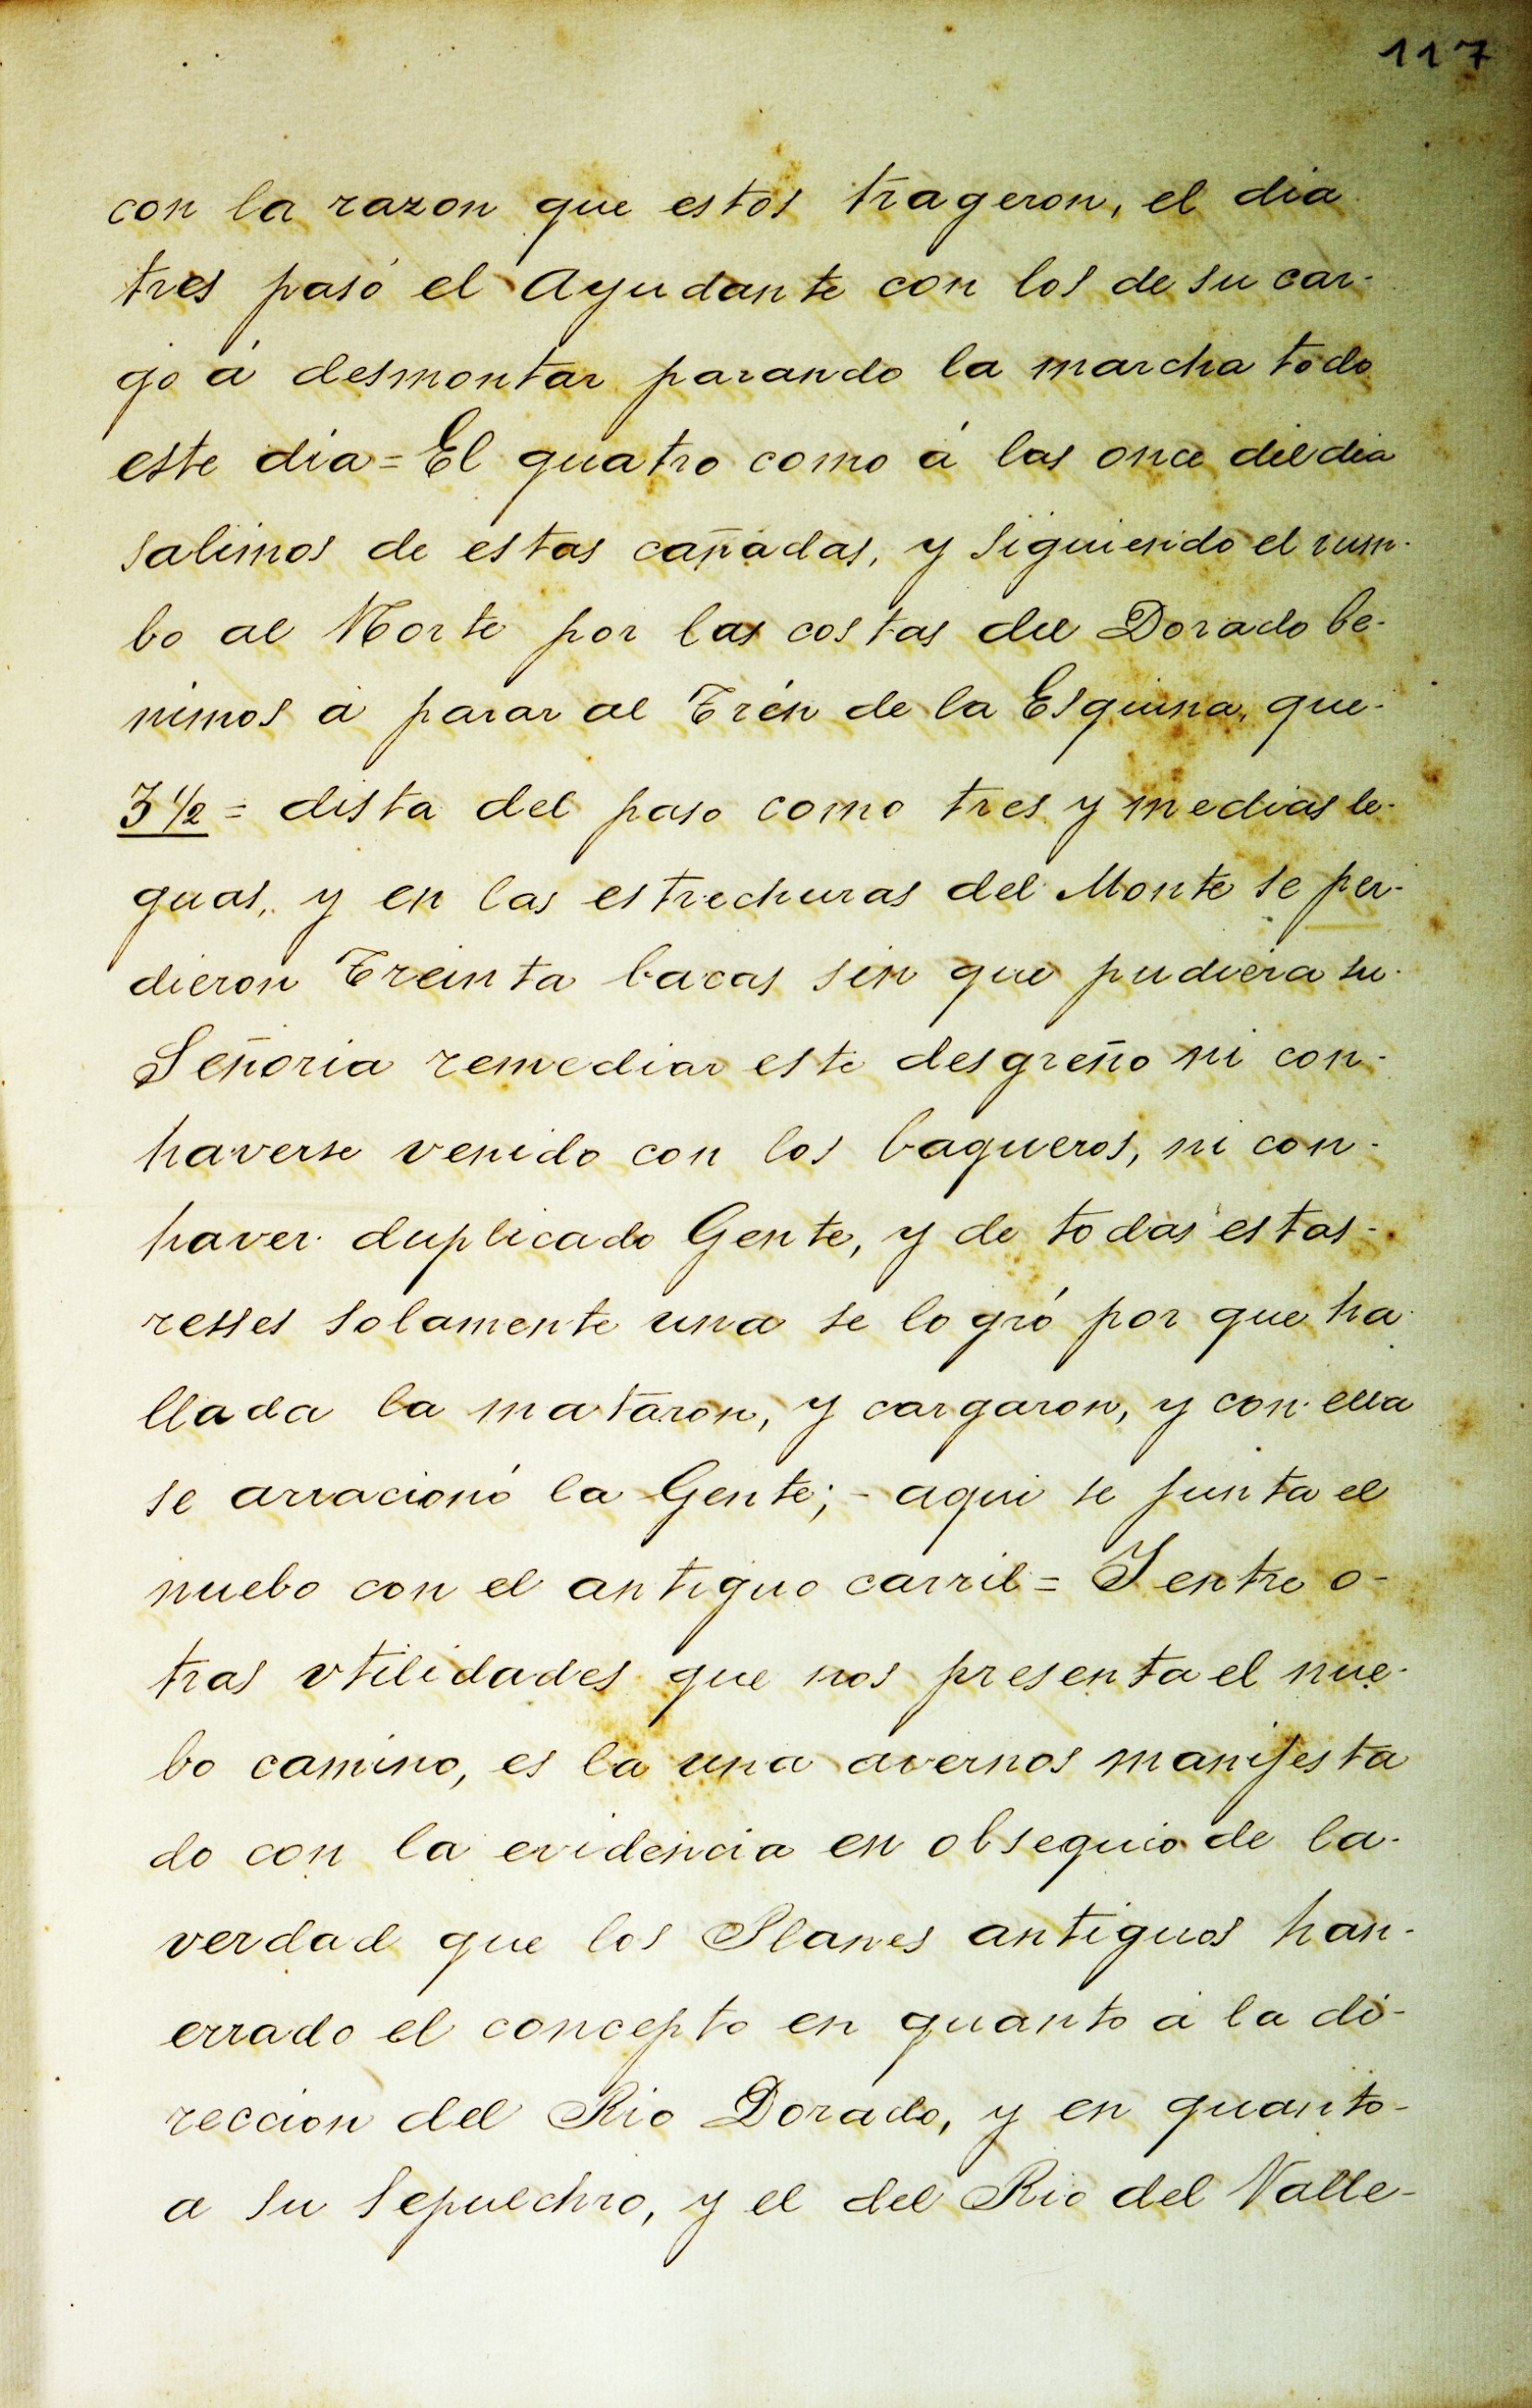 117
con la razon que estos trageron, el dia
tres pasó el Ayudante con los de su car-
go á desmontar parando la marcha todo
este dia = El quatro como á las once del dia
salimos de estas cañadas, y siguiendo el rum-
bo al Norte por las costas del Dorado be-
nimos á parar al Trén de la Esquina, que-
3 1/2 = dista del paso como tres y medias le-
guas, y en las estrechuras del Monte se per-
dieron Treinta bacas sin que pudiera su-
Señoria remediar este desgreño ni con-
haverse venido con los baqueros, ni con-
haver duplicado Gente, y de todas estas-
resses solamente una se logró por que ha-
llada la mataron, y cargaron, y con ella
se arracionó la Gente; - aqui se junta el
nuebo con el antiguo carril = Y entre o-
tras vtilidades que nos presenta el nue-
bo camino, es la una avernos manifesta
do con la evidencia en obsequio de la-
verdad que los Planes antiguos han-
errado el concepto en quanto á la di-
reccion del Rio Dorado, y en quanto-
a su sepulchro, y el del Rio del Valle-